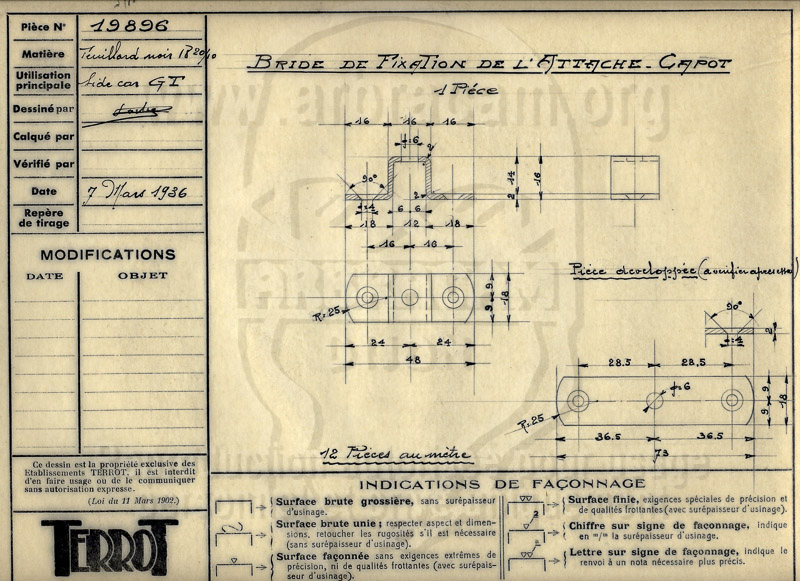 Pièce No 19896
Matière Feuillard noir 18 20/10
Utilisation principale Side car GT
Dessiné par
Calqué par
Vérifié par
Date 7 Mars 1936
Repère de tirage
MODIFICATIONS
DATE OBJET
Ce dessin est la propriété exclusive des
Etablissements TERROT, il est interdit
d'en faire usage ou de le communiquer
sans autorisation expresse.
(Loi du 11 Mars 1902.)
TERROT
BRIDE DE FIXATION DE L'ATTACHE-CAPOT
1 Pièce
16 16 16
6
2
90°
4
2
6 6
18 12 18
16 16
14
2
16
R=25
9 9
18
24 24
48
Pièce developpée (a verifier apres essai)
90°
4
2
28.5 28,5
6
R=25
9 9
18
36.5 36.5
73
12 Pièces au mètre
INDICATIONS DE FAÇONNAGE
Surface brute grossière, sans surépaisseur
d'usinage.
Surface brute unie ; respecter aspect et dimen-
sions, retoucher les rugosités s'il est nécessaire
(sans surépaisseur d'usinage).
Surface façonnée sans exigences extrêmes de
précision, ni de qualités frottantes (avec surépais-
seur d'usinage).
Surface finie, exigences spéciales de précision et
de qualités frottantes (avec surépaisseur d'usinage).
2
Chiffre sur signe de façonnage, indique
en m/m la surépaisseur d'usinage.
a
Lettre sur signe de façonnage, indique le
renvoi à un nota nécessaire plus précis.